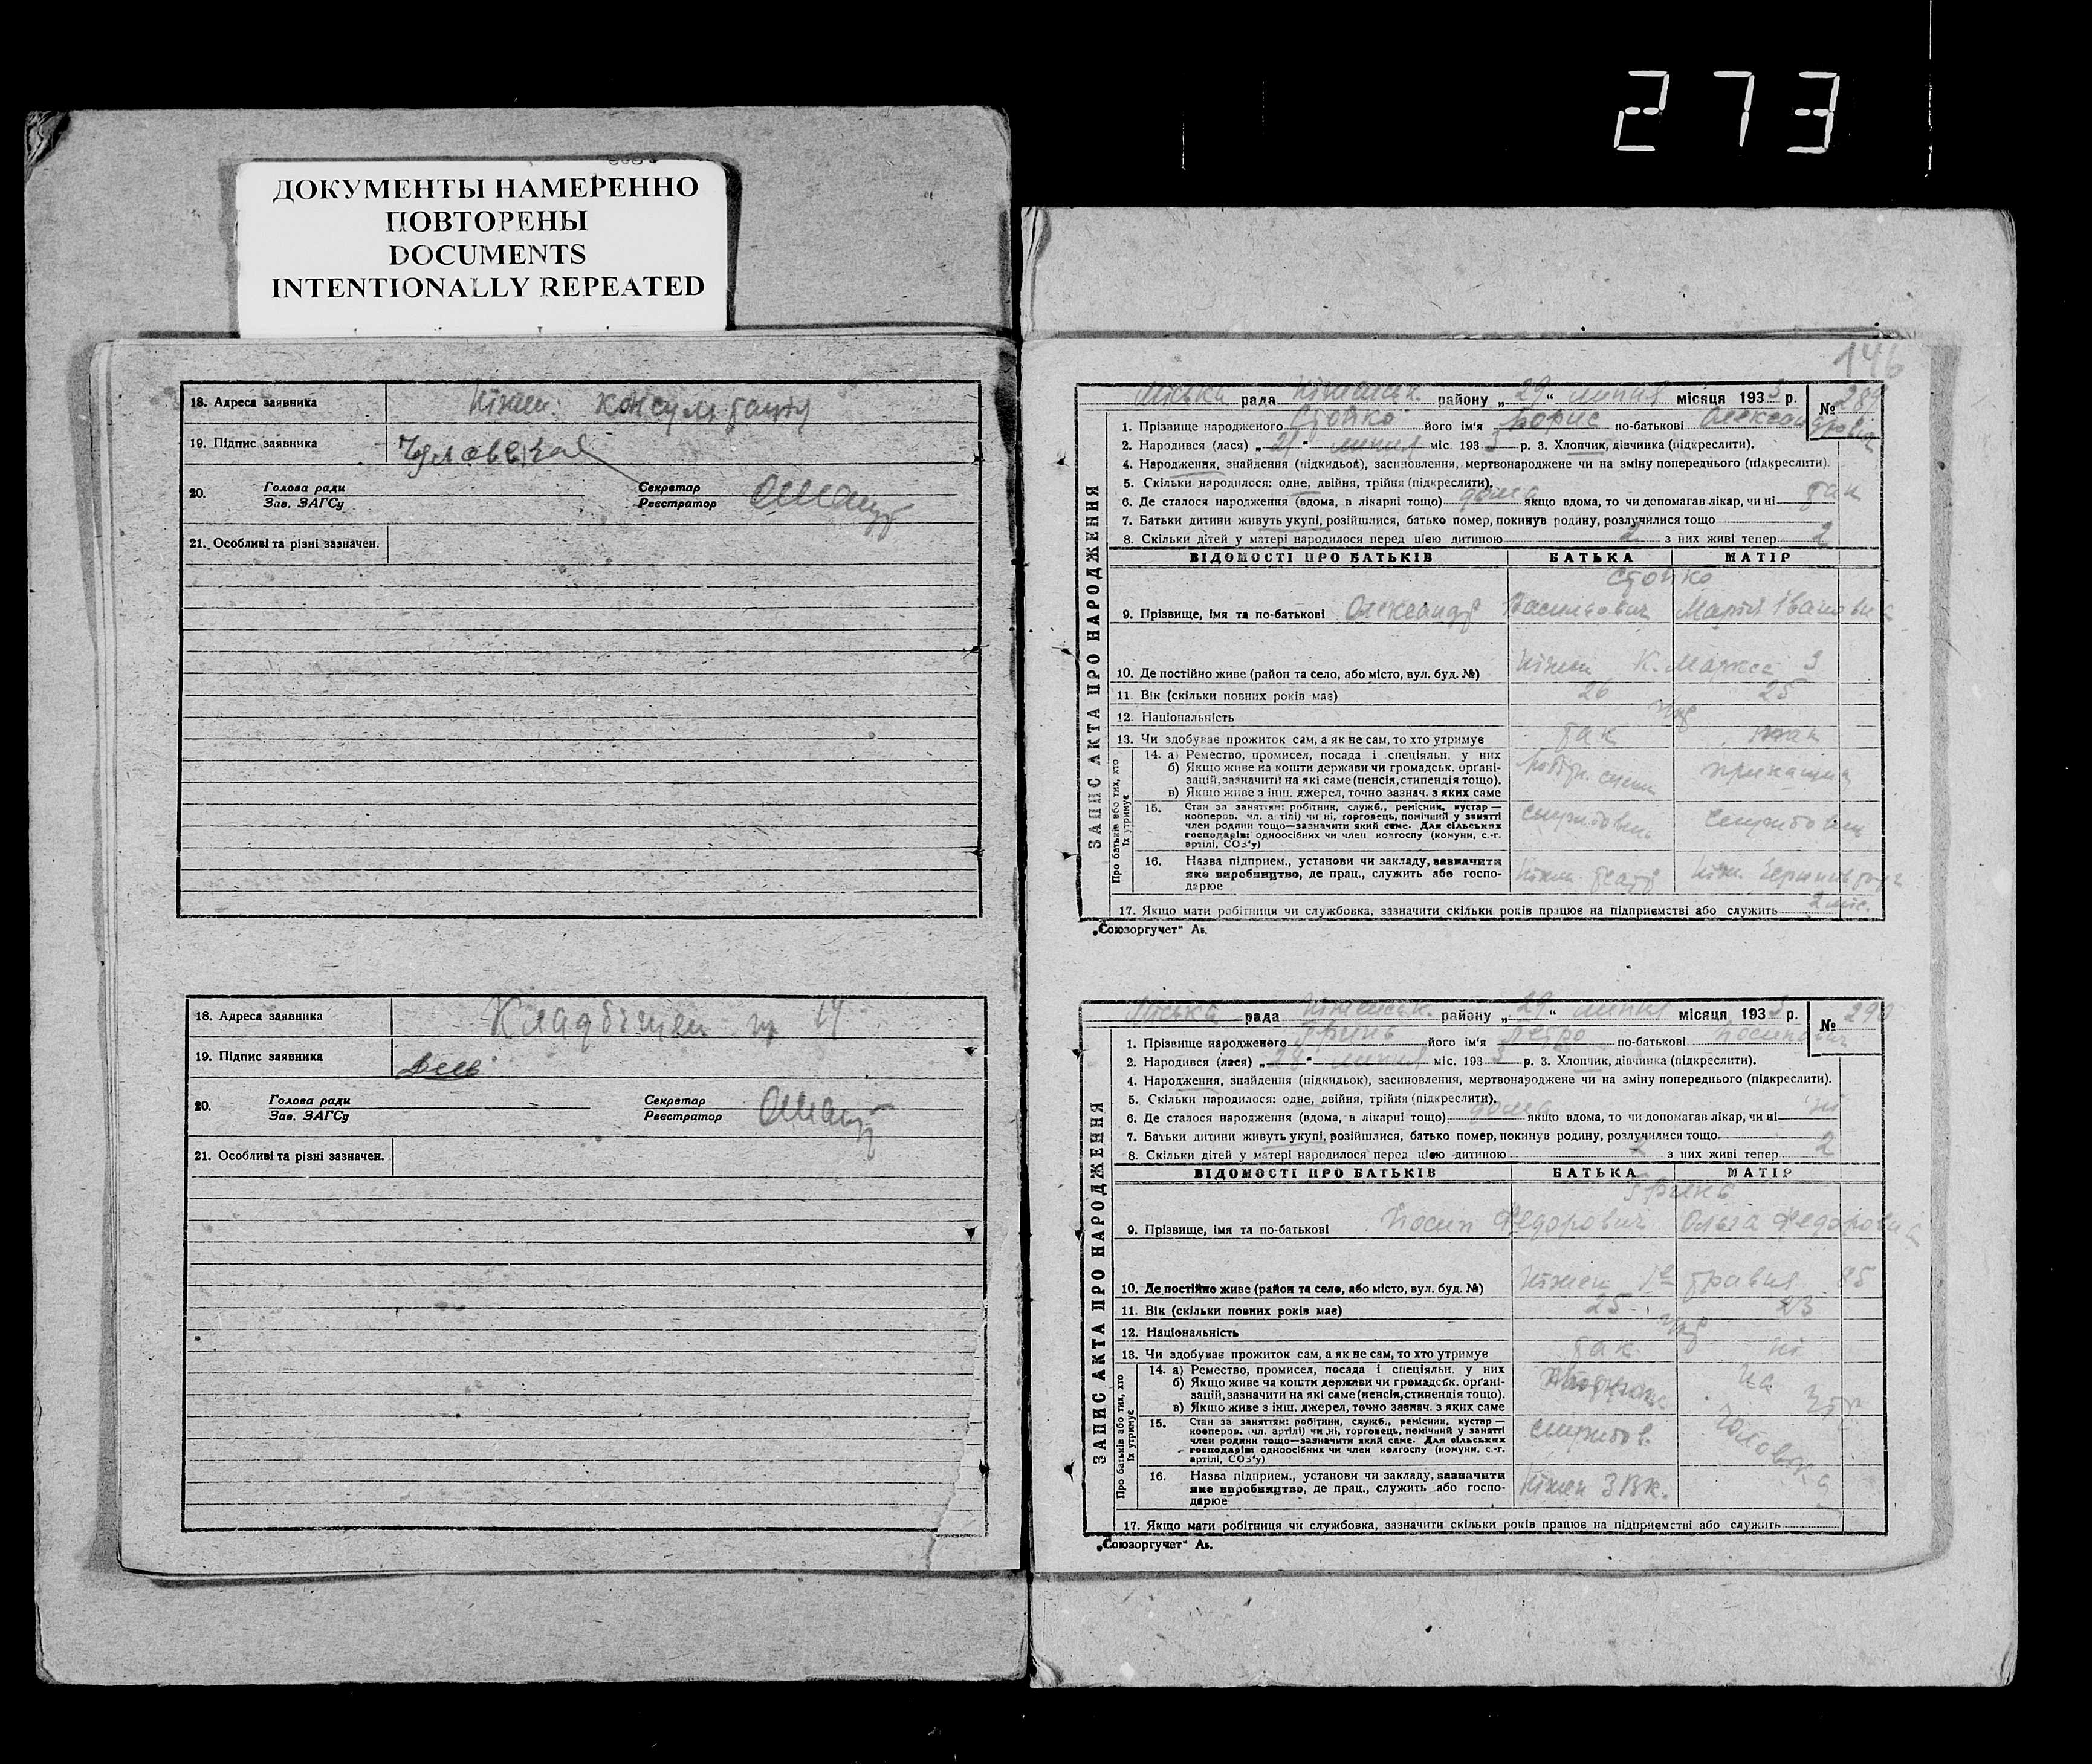 273
ДОКУМЕНТЫ НАМЕРЕННО
ПОВТОРЕНЫ
DOCUMENTS
INTENTIONALLY REPEATED
18. Адреса заявника Ніжен. консультація
19. Підпис заявника
20. Голова ради Секретар
Зав. ЗАГСу Реєстратор
21. Особливі та різні зазначен.
18. Адреса заявника 14
19. Підпис заявника
20. Голова ради Секретар
Зав. ЗАГСу Реєстратор
21. Особливі та різні зазначен.
146
ЗАПИС АКТА ПРО НАРОДЖЕННЯ
Міська рада Ніженськ. району „29“ липня місяця 1933 р. № 289
1. Прізвище народженого Стойко його ім'я Борис по-батькові Олександрович
2. Народився (лася) „21“ липня міс. 1933 р. 3. Хлопчик, дівчинка (підкреслити).
4. Народження, знайдення (підкидьок), засиновлення, мертвонароджене чи на зміну попереднього (підкреслити).
5. Скільки народилося: одне, двійня, трійня (підкреслити).
6. Де сталося народження (вдома, в лікарні тощо) дома якщо вдома, то чи допомагав лікар, чи ні так
7. Батьки дитини живуть укупі, розійшлися, батько помер, покинув родину, розлучилися тощо
8. Скільки дітей у матері народилося перед цією дитиною 2 з них живі тепер 2
ВІДОМОСТІ ПРО БАТЬКІВ БАТЬКА МАТІР
Стойко
9. Прізвище, імя та по-батькові Олександр Васильович Марія Івановна
10. Де постійно живе (район та село, або місто, вул. буд. №) Ніжен К. Маркса 3
11. Вік (скільки повних років має) 26 25
12. Національність укр
13. Чи здобуває прожиток сам, а як не сам, то хто утримує так так
Про батьків або тих, хто їх утримує
14. а) Ремество, промисел, посада і спеціяльн. у них
б) Якщо живе на кошти держави чи громадськ. органі-
зацій, зазначити на які саме (пенсія, стипендія тощо).
в) Якщо живе з інш. джерел, точно зазнач. з яких саме
15. Стан за заняттям: робітник, служб., ремісник, кустар —
кооперов. чл. артілі) чи ні, торговець, помічний у занятті
член родини тощо—зазначити який саме. Для сільських
господарів: одноосібних чи член колгоспу (комуни, с.-г.
артілі, СОЗ'у) службовець службовець
16. Назва підприєм., установи чи закладу, зазначити
яке виробництво, де прац., служить або госпо-
дарює Ніжен театр
17. Якщо мати робітниця чи службовка, зазначити скільки років працює на підприємстві або служить 2 міс.
„Союзоргучет“ Ав.
ЗАПИС АКТА ПРО НАРОДЖЕННЯ
Міська рада Ніженськ. району „29“ липня місяця 1933 р. № 290
1. Прізвище народженого Гринь його ім'я Петро по-батькові Йосипович
2. Народився (лася) „28“ липня міс. 1933 р. 3. Хлопчик, дівчинка (підкреслити).
4. Народження, знайдення (підкидьок), засиновлення, мертвонароджене чи на зміну попереднього (підкреслити).
5. Скільки народилося: одне, двійня, трійня (підкреслити).
6. Де сталося народження (вдома, в лікарні тощо) дома якщо вдома, то чи допомагав лікар, чи ні ні
7. Батьки дитини живуть укупі, розійшлися, батько помер, покинув родину, розлучилися тощо
8. Скільки дітей у матері народилося перед цією дитиною 2 з них живі тепер 2
ВІДОМОСТІ ПРО БАТЬКІВ БАТЬКА МАТІР
Гринь
9. Прізвище, імя та по-батькові Йосип Федорович Ольга Федоровна
10. Де постійно живе (район та село, або місто, вул. буд. №) Ніжен 1го травня 85
11. Вік (скільки повних років має) 25 23
12. Національність укр
13. Чи здобуває прожиток сам, а як не сам, то хто утримує так ні
Про батьків або тих, хто їх утримує
14. а) Ремество, промисел, посада і спеціяльн. у них
б) Якщо живе на кошти держави чи громадськ. органі-
зацій, зазначити на які саме (пенсія, стипендія тощо).
в) Якщо живе з інш. джерел, точно зазнач. з яких саме На утр
15. Стан за заняттям: робітник, служб., ремісник, кустар —
кооперов. чл. артілі) чи ні, торговець, помічний у занятті
член родини тощо—зазначити який саме. Для сільських
господарів: одноосібних чи член колгоспу (комуни, с.-г.
артілі, СОЗ'у) службов. чоловіка
16. Назва підприєм., установи чи закладу, зазначити
яке виробництво, де прац., служить або госпо-
дарює Ніжен ЗВК.
17. Якщо мати робітниця чи службовка, зазначити скільки років працює на підприємстві або служить
„Союзоргучет“ Ав.